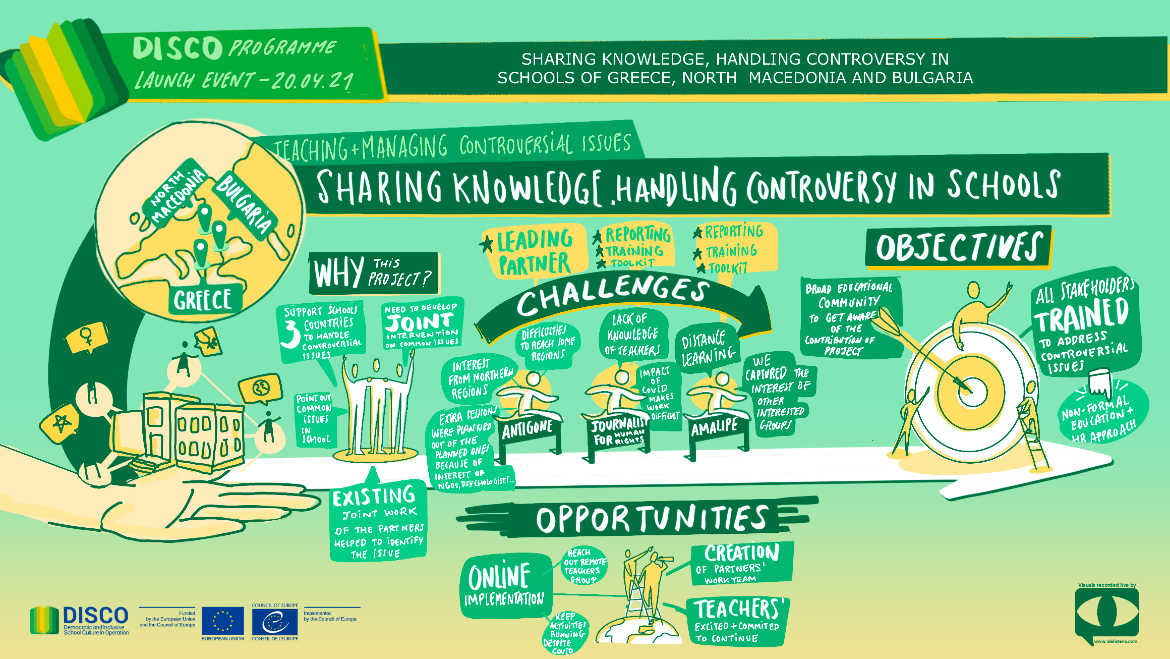 DISCO PROGRAMME
LAUNCH EVENT - 20.04.21
SHARING KNOWLEDGE, HANDLING CONTROVERSY IN
SCHOOLS OF GREECE, NORTH MACEDONIA AND BULGARIA
TEACHING + MANAGING CONTROVERSIAL ISSUES
SHARING KNOWLEDGE, HANDLING CONTROVERSY IN SCHOOLS
NORTH
MACEDONIA
BULGARIA
GREECE
WHY THIS
PROJECT?
SUPPORT SCHOOLS
3 COUNTRIES
TO HANDLE
CONTROVERSIAL
ISSUES
NEED TO DEVELOP
JOINT
INTERVENTION
ON COMMON ISSUES
POINT OUT
COMMON
ISSUES
IN
SCHOOL
EXISTING
JOINT WORK
OF THE PARTNERS
HELPED TO IDENTIFY
THE ISSUE
★ LEADING
PARTNER
★ REPORTING
★ TRAINING
★ TOOLKIT
★ REPORTING
★ TRAINING
★ TOOLKIT
CHALLENGES
DIFFICULTIES
TO REACH SOME
REGIONS
LACK OF
KNOWLEDGE
OF TEACHERS
DISTANCE
LEARNING
INTEREST
FROM NORTHERN
REGIONS
IMPACT
OF
COVID
MAKES
WORK
DIFFICULT
WE
CAPTURED THE
INTEREST OF
OTHER
INTERESTED
GROUPS
EXTRA
WERE PLANNED
OUT OF THE
PLANNED ONES
BECAUSE OF
INTEREST OF
NGOs, PSYCHOLOGISTS...
ANTIGONE
JOURNALIST
FOR HUMAN
RIGHTS
AMALIPE
OBJECTIVES
BROAD EDUCATIONAL
COMMUNITY
TO GET AWARE
OF THE
CONTRIBUTION OF
PROJECT
ALL STAKEHOLDERS
TRAINED
TO ADDRESS
CONTROVERSIAL
ISSUES
NON-FORMAL
EDUCATION +
HR APPROACH
OPPORTUNITIES
ONLINE
IMPLEMENTATION
REACH
OUT REMOTE
TEACHERS
GROUP
KEEP
ACTIVITIES
RUNNING
DESPITE
COVID
CREATION
OF PARTNERS'
WORK TEAM
TEACHERS'
EXCITED + COMMITED
TO CONTINUE
DISCO
Democratic and Inclusive
School Culture in Operation
Funded
by the European Union
and the Council of Europe
EUROPEAN UNION
COUNCIL OF EUROPE
CONSEIL DE L'EUROPE
Implemented
by the Council of Europe
Visuals recorded live by